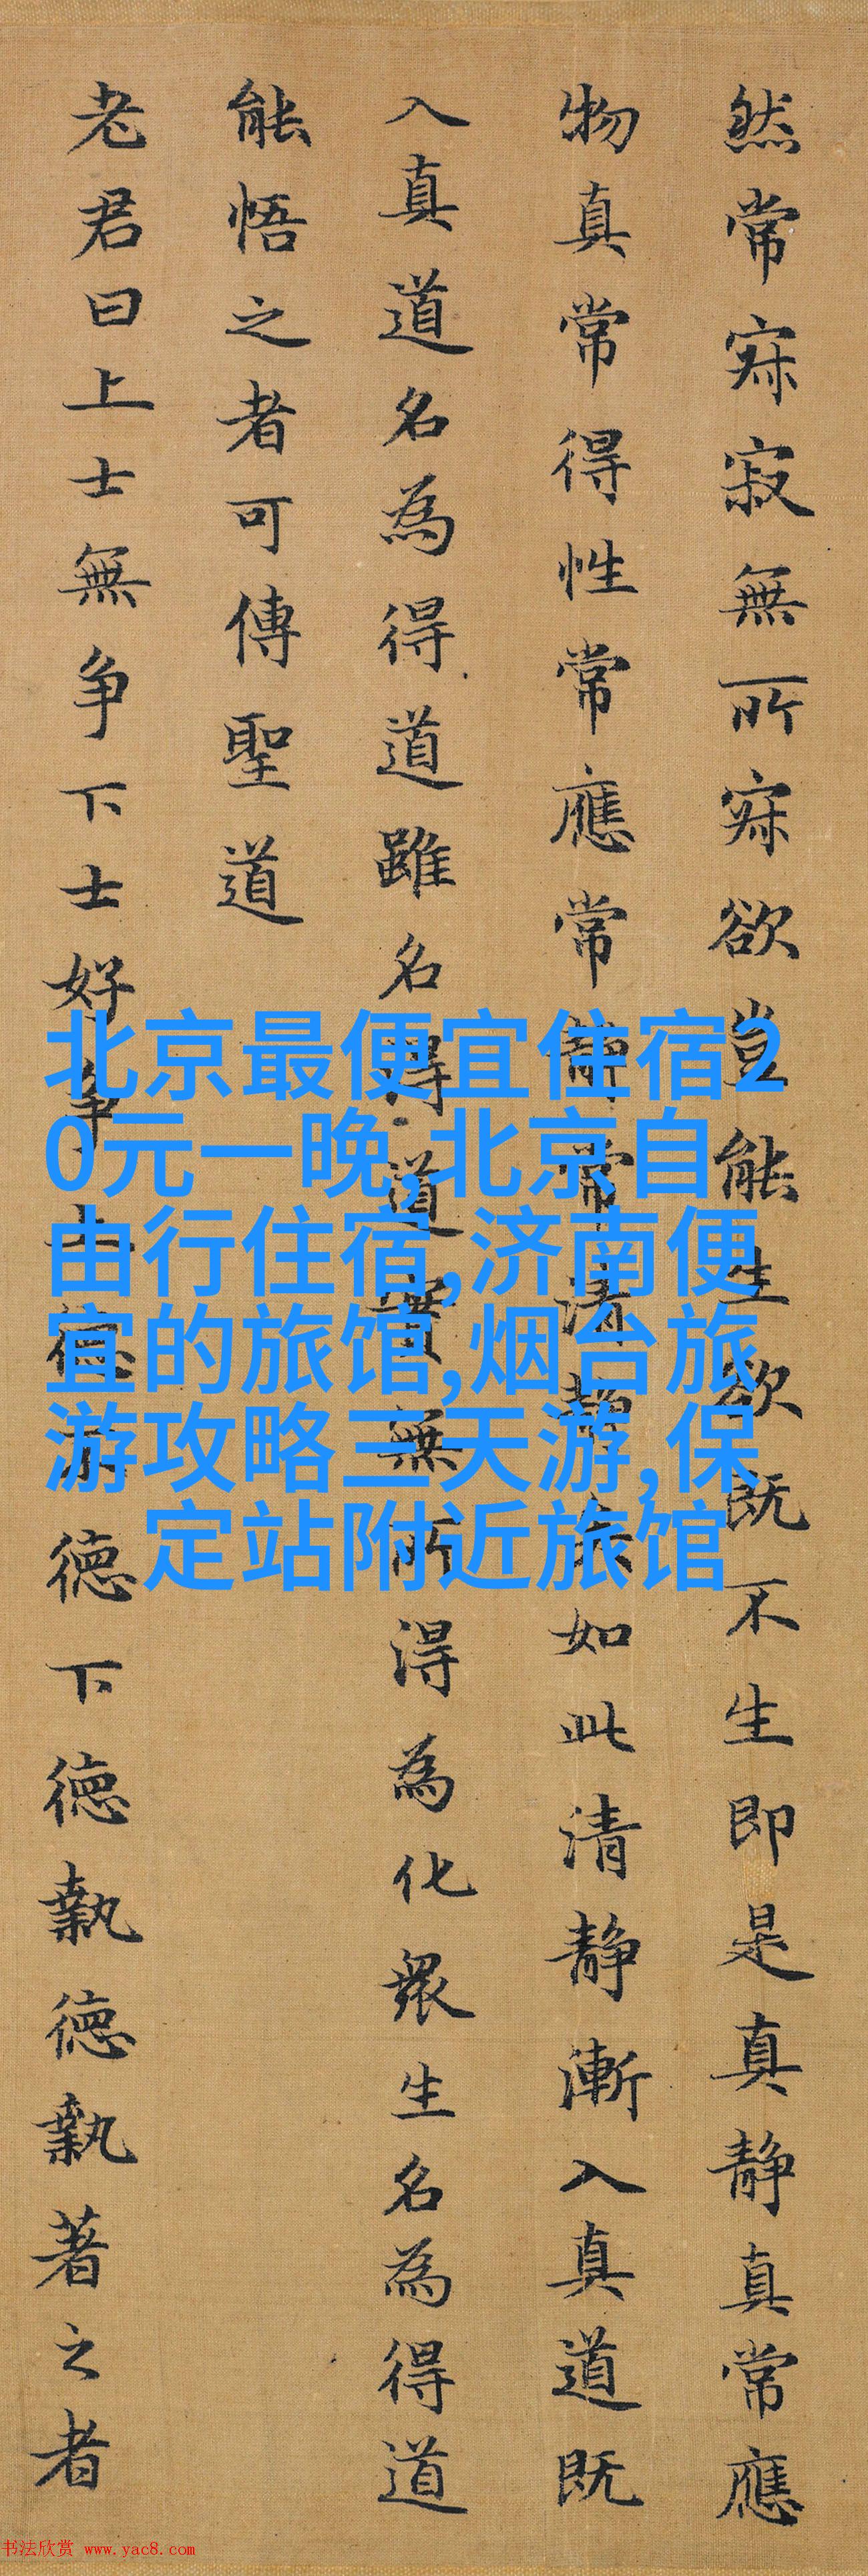 然常寂寂無所寂欲豈能生欲既不生即是真静真常應
物真常得性常應常静常清静矣如此清静漸入真道既
入真道名為得道雖名得道實無所得為化衆生名為得道
能悟之者可傳聖道
老君曰上士無争下士好争上德不德下德執德執著之者
北京最便宜住宿2
0元一晚,北京自
由行住宿,济南便
宜的旅馆,烟台旅
游攻略三天游,保
定站附近旅馆
书法欣赏 www.yac8.com